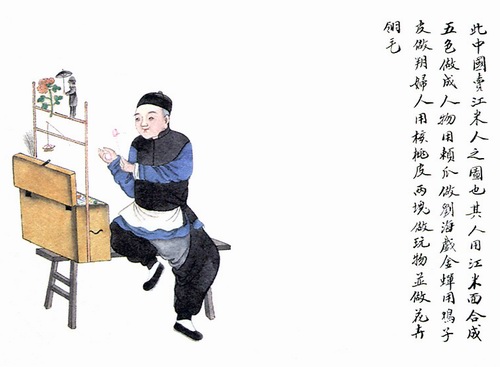 此中國賣江米人之圖也其人用江米面合成
五色做成人物用頼瓜做劉海戲金蟬用鴣子
友做朔婦人用核桃皮両塊做玩物並做花卉
翎毛